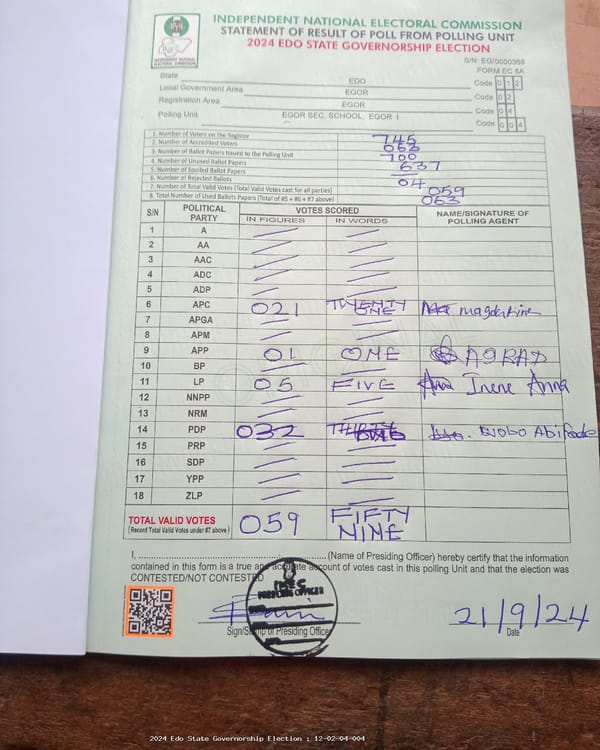 INDEPENDENT NATIONAL ELECTORAL COMMISSION
STATEMENT OF RESULT OF POLL FROM POLLING UNIT
2024 EDO STATE GOVERNORSHIP ELECTION
S/N: EG/0000366
FORM EC 8A
State EDO Code 0 1 2
Local Government Area EGOR Code 0 2
Registration Area EGOR Code 0 4
Polling Unit EGOR SEC. SCHOOL, EGOR I Code 0 0 4
1. Number of Voters on the Register 745
2. Number of Accredited Voters 063
3. Number of Ballot Papers Issued to the Polling Unit 700
4. Number of Unused Ballot Papers 637
5. Number of Spoiled Ballot Papers
6. Number of Rejected Ballots 04
7. Number of Total Valid Votes (Total Valid Votes cast for all parties) 059
8. Total Number of Used Ballots Papers (Total of #5 + #6 + #7 above) 063
S/N POLITICAL PARTY VOTES SCORED NAME/SIGNATURE OF POLLING AGENT
IN FIGURES IN WORDS
1 A
2 AA
3 AAC
4 ADC
5 ADP
6 APC 021 TWENTY ONE magdaline
7 APGA
8 APM
9 APP 01 ONE
10 BP
11 LP 05 FIVE Irene Anna
12 NNPP
13 NRM
14 PDP 032
15 PRP
16 SDP
17 YPP
18 ZLP
TOTAL VALID VOTES 059 FIFTY NINE
(Record Total Valid Votes under #7 above)
I, (Name of Presiding Officer) hereby certify that the information
contained in this form is a true and accurate account of votes cast in this polling Unit and that the election was
CONTESTED/NOT CONTESTED
INEC
PRESIDING OFFICER
Sign/Stamp of Presiding Officer
21/9/24
Date
2024 Edo State Governorship Election : 12-02-04-004